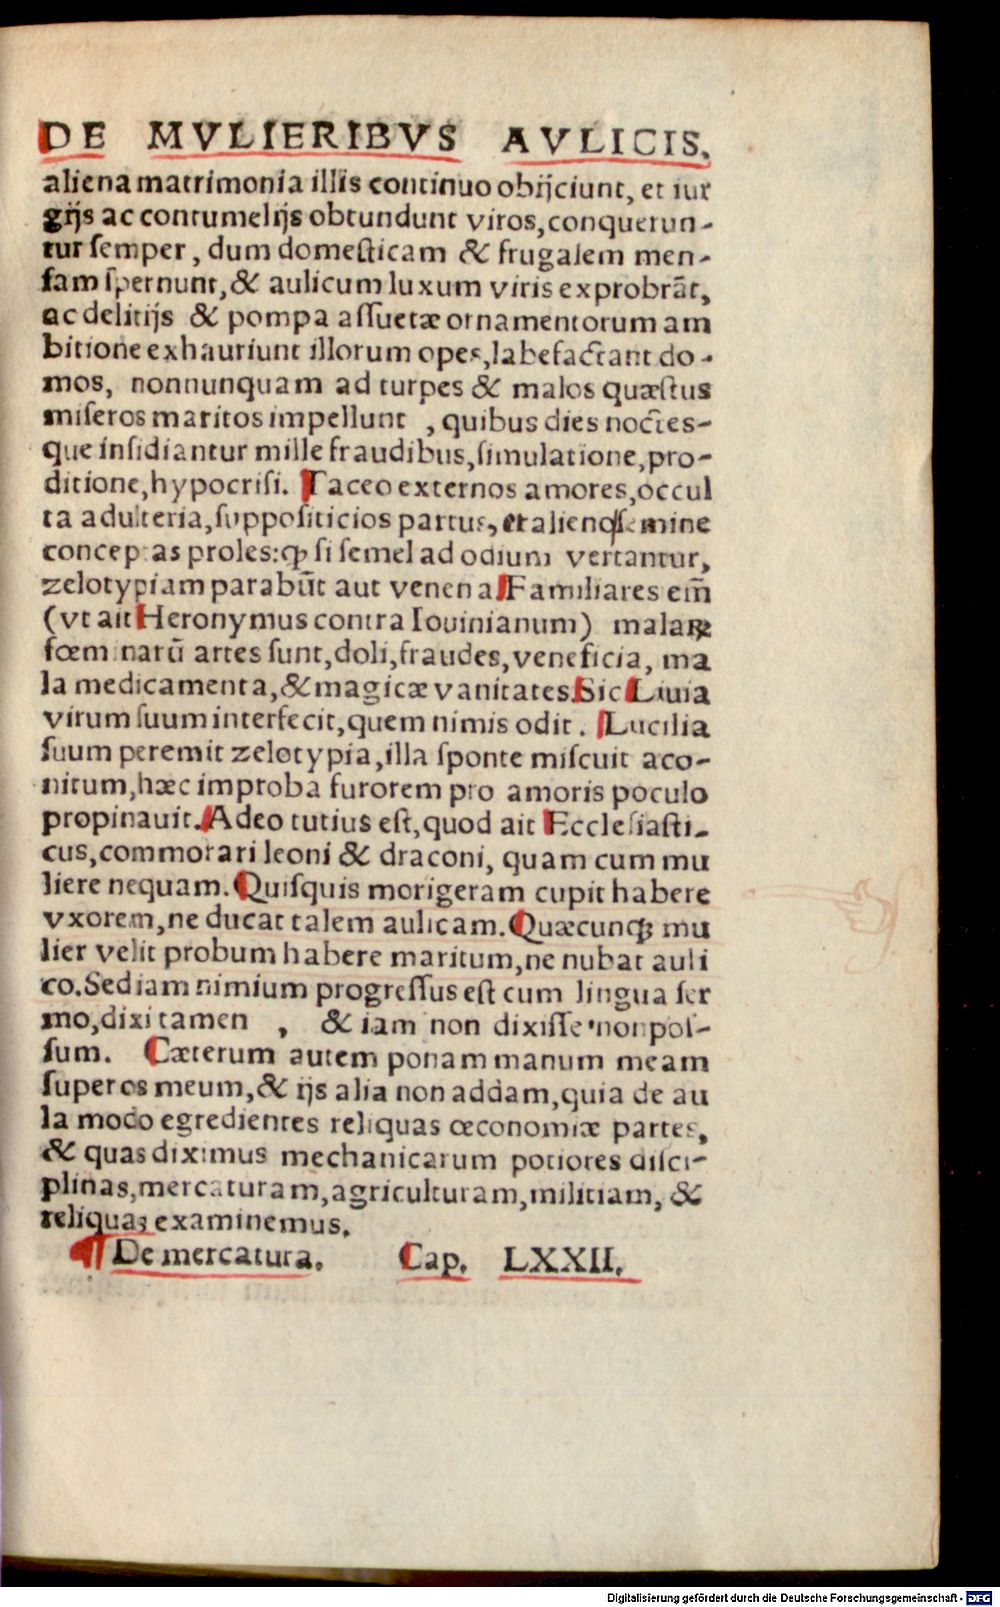 DE MVLIERIBVS AVLICIS.
aliena matrimonia illis continuo obijciunt, et iur
gijs ac contumelijs obtundunt viros, conquerun-
tur semper, dum domesticam & frugalem men-
sam spernunt, & aulicum luxum viris exprobrāt,
ac delitijs & pompa assuetæ ornamentorum am
bitione exhauriunt illorum opes, labefactant do-
mos, nonnunquam ad turpes & malos quæstus
miseros maritos impellunt , quibus dies noctes-
que insidiantur mille fraudibus, simulatione, pro-
ditione, hypocrisi. Taceo externos amores, occul
ta adulteria, suppositicios partus, et alienoꝗ semine
conceptas proles: ꝙ si semel ad odium vertantur,
zelotypiam parabūt aut venena Familiares em̄
(vt ait Heronymus contra Iouinianum) malaꝝ
fœminarū artes sunt, doli, fraudes, veneficia, ma
la medicamenta, & magicæ vanitates. Sic Liuia
virum suum interfecit, quem nimis odit. Lucilia
suum peremit zelotypia, illa sponte miscuit aco-
nitum, hæc improba furorem pro amoris poculo
propinauit. Adeo tutius est, quod ait Ecclesiasti-
cus, commorari leoni & draconi, quam cum mu
liere nequam. Quisquis morigeram cupit habere
vxorem, ne ducat talem aulicam. Quæcunqꝫ mu
lier velit probum habere maritum, ne nubat auli
co. Sed iam nimium progressus est cum lingua ser
mo, dixi tamen , & iam non dixisse non pos-
sum. Cæterum autem ponam manum meam
super os meum, & ijs alia non addam, quia de au
la modo egredientes reliquas œconomiæ partes,
& quas diximus mechanicarum potiores disci-
plinas, mercaturam, agriculturam, militiam, &
reliquas examinemus.
¶ De mercatura. Cap. LXXII.
Digitalisierung gefördert durch die Deutsche Forschungsgemeinschaft - DFG